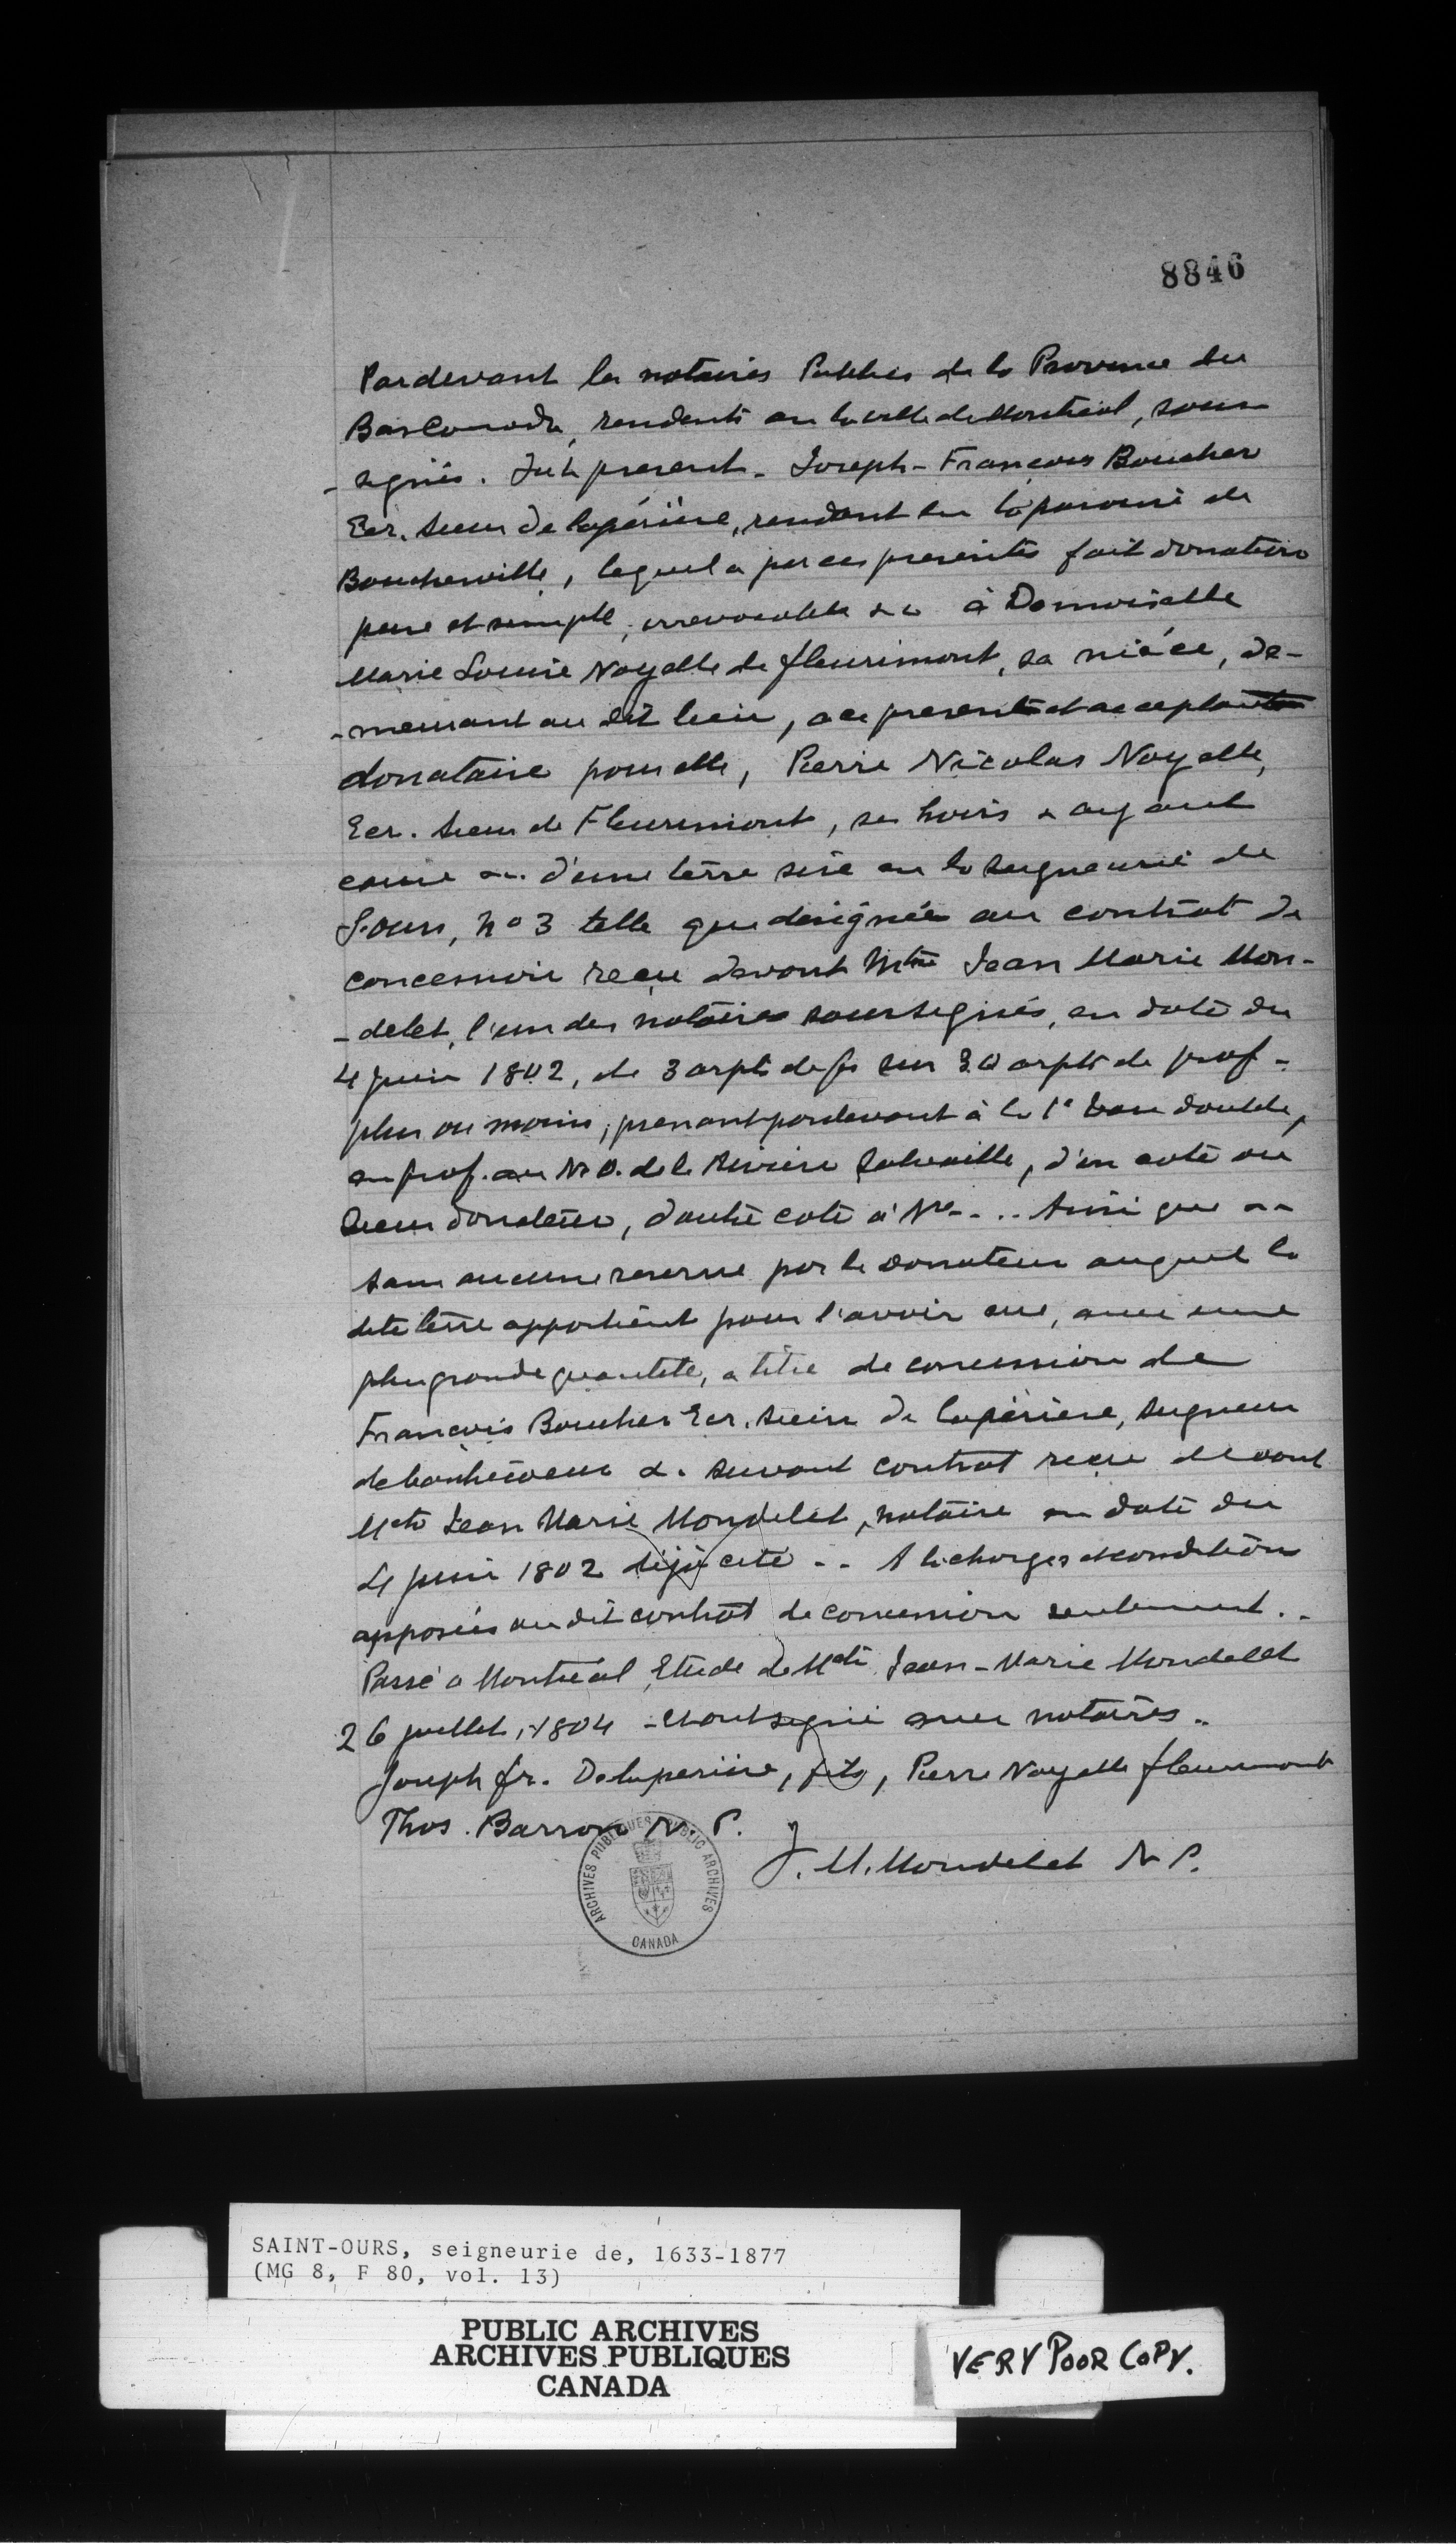 8846
Pardevant les notaires Publics de la Province du
Bas Canada, residents en la ville de Montreal, sous-
-signés. Fut present - Joseph-François Boucher
Ecr. Sieur de laperiere, residant en la paroisse de
Boucherville, lequel a par ces presentes fait donation
pure et simple, irrevocable &c à Demoiselle
Marie Louise Noyelle de fleurimont, sa niéce, de-
-meurant au dit lieu, a ce present et acceptant
donataire pour elle, Pierre Nicolas Noyelle,
Ecr. Sieur de Fleurimont, ses hoirs & ayant
cause ... d'une terre sise en la seigneurie de
S. Ours, No 3 telle que designée au contrat de
concession reçu devant Mtre Jean Marie Mon-
-delet, l'un des notaires soussignés, en date du
4 juin 1802, de 3 arpts de fs sur 30 arpts de prof-
plus ou moins, prenant pardevant à la 1e double,
en prof. au N.O. de la Riviere Salvaille, d'un coté au
Sieur donateur, d'autre coté à Mr - - .. Ainsi que --
sans aucune reserve par le Donateur auquel la
dite terre appartient pour l'avoir eue, avec une
plus grande quantité, a titre de concession de
François Boucher Ecr. Sieur de laperiere, seigneur
de &. suivant contrat reçu devant
Mtre Jean Marie Mondelet, notaire en date du
4 juin 1802 déjà cité - - A les charges et conditions
apposées au dit contrat de concession seulement ..
Passé a Montréal, Etude de Mtre Jean-Marie Mondelet
26 juillet, 1804 - et ont signé avec notaires..
Joseph fr. Delaperiere, fils, Pierre Noyelle fleurimont
Thos. Barron N. P.
J. M. Mondelet N P.
ARCHIVES PUBLIQUES PUBLIC ARCHIVES
CANADA
SAINT-OURS, seigneurie de, 1633-1877
(MG 8, F 80, vol. 13)
PUBLIC ARCHIVES
ARCHIVES PUBLIQUES
CANADA
VERY POOR COPY.